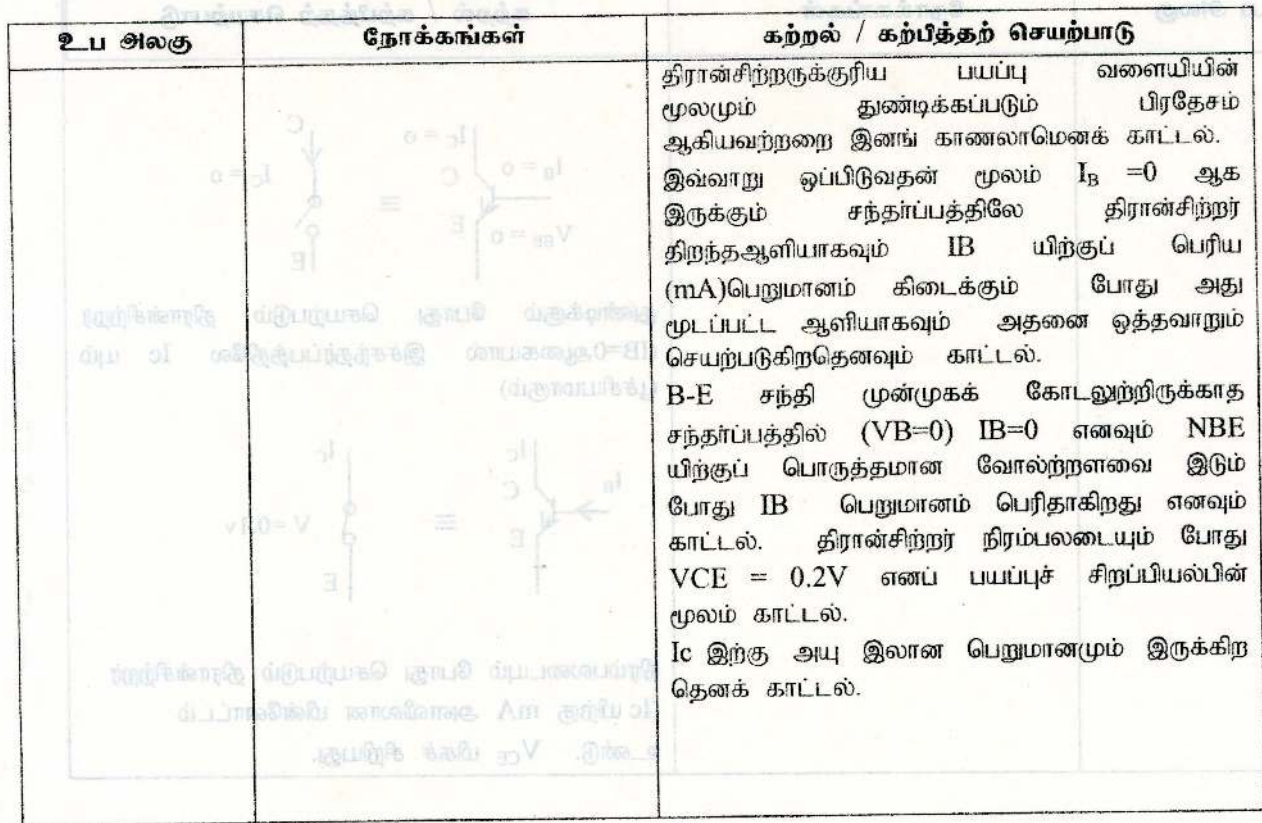 உப அலகு நோக்கங்கள் கற்றல் / கற்பித்தற் செயற்பாடு
திரான்சிற்றருக்குரிய பயப்பு வளையியின்
மூலமும் துண்டிக்கப்படும் பிரதேசம்
ஆகியவற்றறை இனங் காணலாமெனக் காட்டல்.
இவ்வாறு ஒப்பிடுவதன் மூலம் I_B =0 ஆக
இருக்கும் சந்தர்ப்பத்திலே திரான்சிற்றர்
திறந்தஆளியாகவும் IB யிற்குப் பெரிய
(mA)பெறுமானம் கிடைக்கும் போது அது
மூடப்பட்ட ஆளியாகவும் அதனை ஒத்தவாறும்
செயற்படுகிறதெனவும் காட்டல்.
B-E சந்தி முன்முகக் கோடலுற்றிருக்காத
சந்தர்ப்பத்தில் (VB=0) IB=0 எனவும் NBE
யிற்குப் பொருத்தமான வோல்ற்றளவை இடும்
போது IB பெறுமானம் பெரிதாகிறது எனவும்
காட்டல். திரான்சிற்றர் நிரம்பலடையும் போது
VCE = 0.2V எனப் பயப்புச் சிறப்பியல்பின்
மூலம் காட்டல்.
Ic இற்கு அயு இலான பெறுமானமும் இருக்கிற
தெனக் காட்டல்.